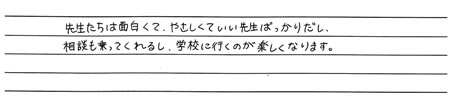 先生たちは面白くて、やさしくていい先生ばっかりだし、
相談も乗ってくれるし、学校に行くのが楽しくなります。